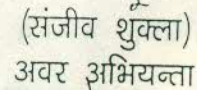 (संजीव शुक्ला)
अवर अभियन्ता